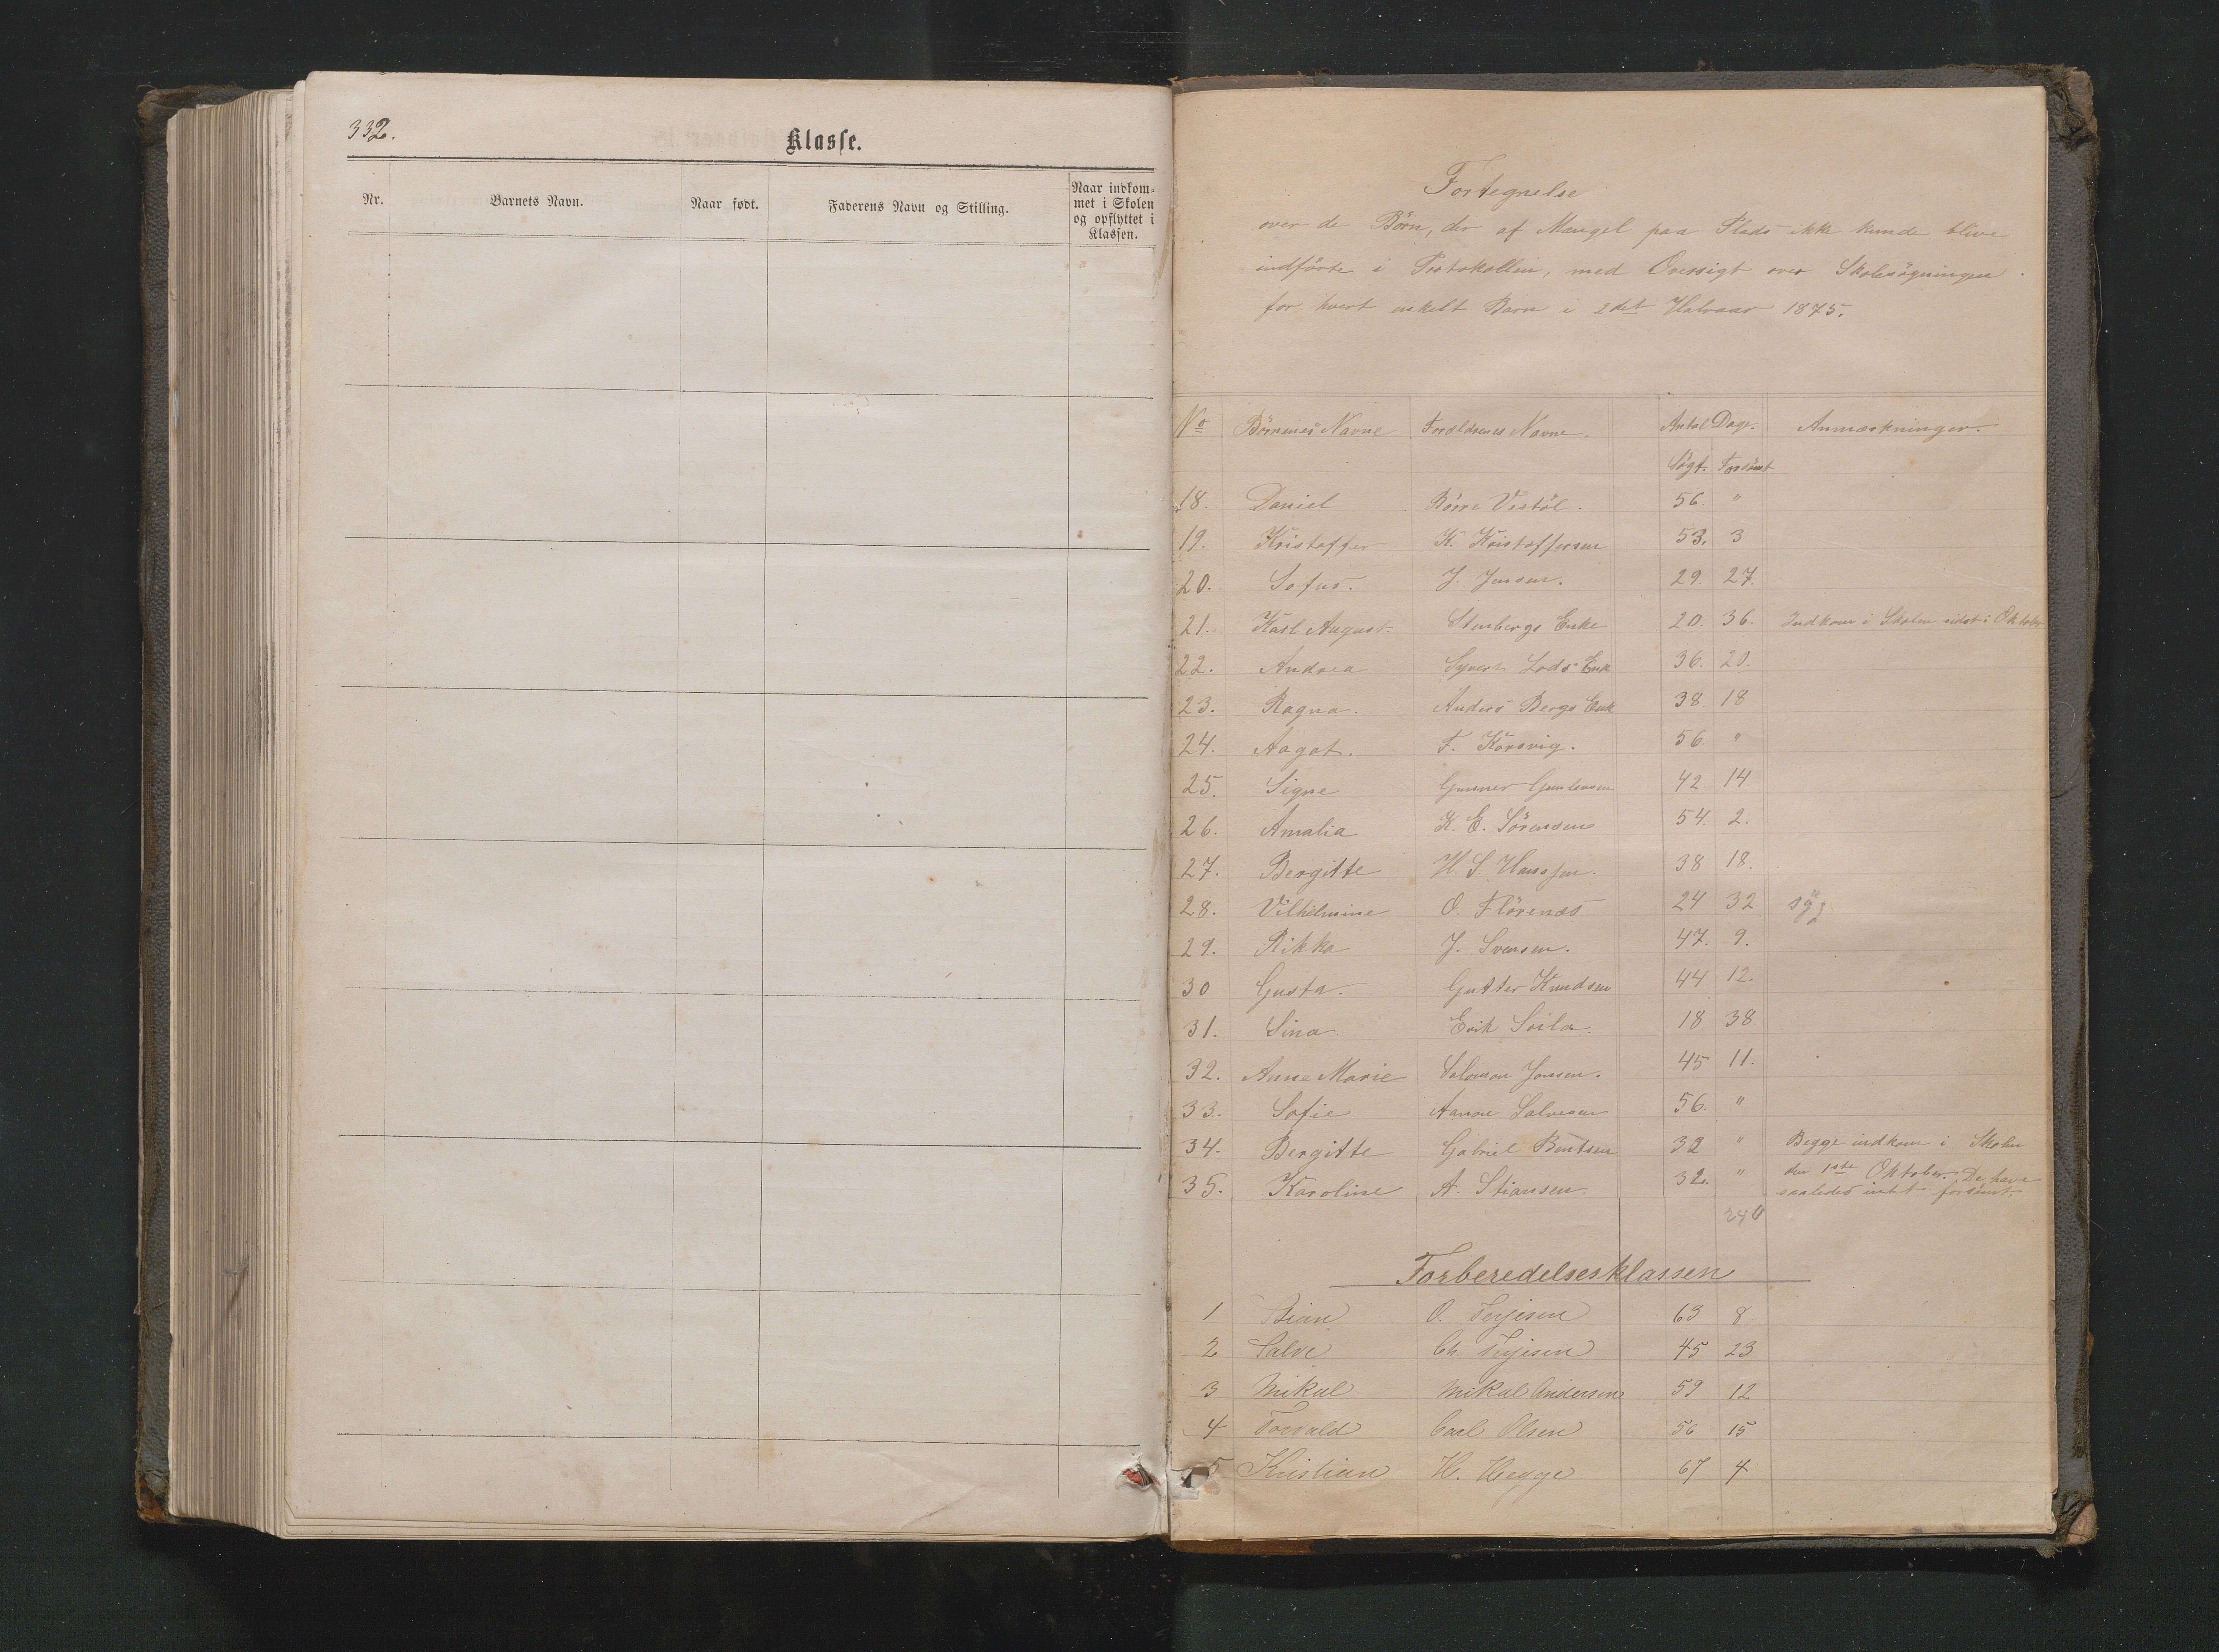 332.
Klasse.
Nr. Barnets Navn. Naar født. Faderens Navn og Stilling. Naar indkom-
met i Skolen
og opflyttet i
Klassen.
Fortegnelse
over de Börn, der af Mangel paa Plads ikke kunde blive
indförte i Protokollen, med Oversigt over Skolesögningen
for hvert enkelt Barn i 2det Halvaar 1875.
No Börnenes Navne Forældrenes Navne. Antal Dage. Anmærkninger.
Sögt. Forsömt
18. Daniel Börre Vestöl. 56. "
19. Kristoffer K. Kristoffersen 53. 3
20. Sofus. J. Jensen. 29. 27.
21. Karl August. Stenbergs Enke 20. 36. Indkom i Skolen sidst i Oktober
22. Andrea Lods Enk 36. 20.
23. Ragna. Anders Bergs Enk 38 18
24. Aagot. F. Korsvig. 56. "
25. Signe Gunner Guntersen 42. 14
26. Amalia K. E. Sörensen 54. 2.
27. Bergitte H. S. Hanssen. 38 18.
28. Vilhelmine O. Flörenæs 24 32 syg
29. Rikka J. Svensen. 47. 9.
30 Gusta. Gutter Knudsen 44 12.
31. Sina Erik Soila. 18 38
32. Anne Marie Salomon Jensen. 45 11.
33. Sofie Aanon Salvesen 56. "
34. Bergitte Gabriel Bentsen 32 " Begge indkom i Skolen
35. Karoline A. Stiansen. 32. " den 1ste Oktober. De have
saaledes intet forsömt.
240
Forberedelsesklassen
1 Stian O. Terjesen 63 8
2 Salve Ch. Terjesen 45 23
3 Mikal Mikal Andersen 59 12
4 Torvald Carl Olsen 56 15
5 Kristian H. Hegge 67 4